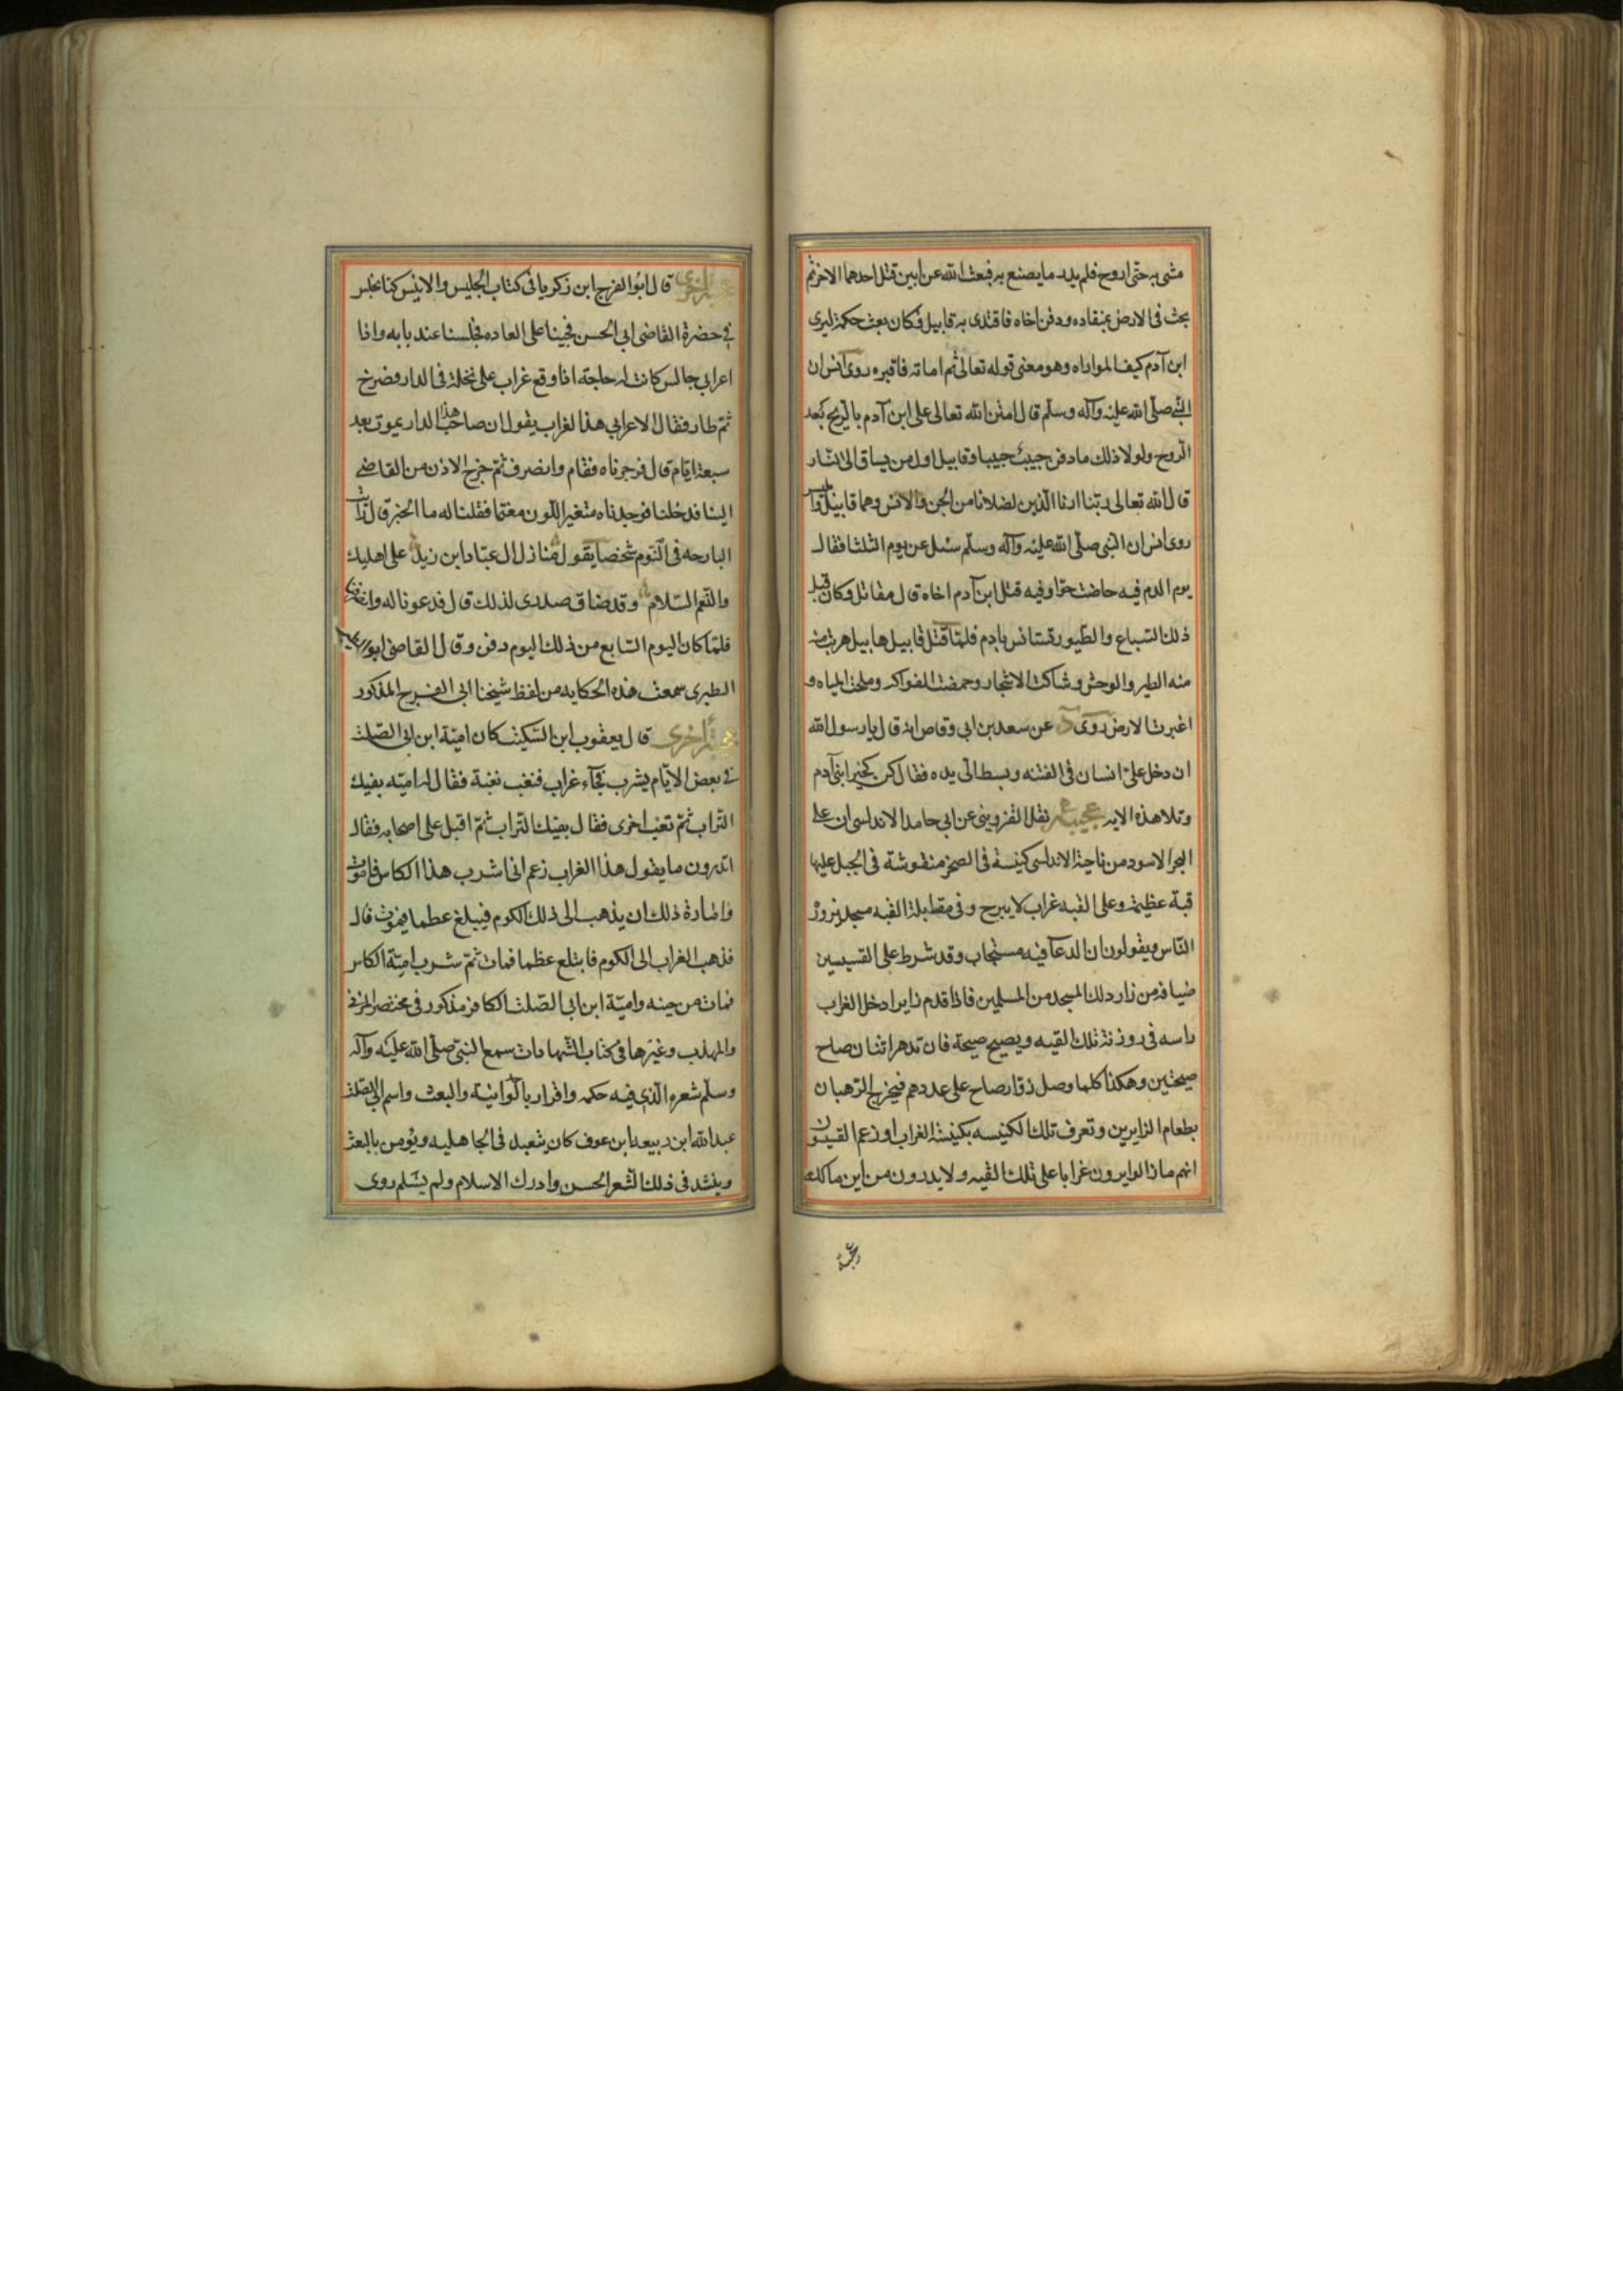 مشى به حتى اروح فلم يدد ما يصنع به فبعث الله عرابين قتل احدهما الاخر ثم
بحث فى الارض بمنقاده ودفن اخاه فاقتدى به قابيل فكان بعث حكمة ليرى
ابن آدم كيف المواراه وهو معنى قوله تعالى ثم اماته فاقبره روى انس ان
النبى صلى الله عليه وآله وسلم قال امتن الله تعالى على ابن آدم بالريح بعد
الروح ولولا ذلك ما دفن حبيب حبيبا وقابيل اول من يساق الى النار
قال الله تعالى ربنا ارنا الذين اضلانا من الجن والانس وهما قابيل وابليس
روى انس ان النبى صلى الله عليه وآله وسلم سئل عن يوم الثلثا فقال
يوم الدم فيه حاضت حوا وفيه قتل ابن آدم اخاه قال مقاتل وكان قبل
ذلك السباع والطيور تستانس بادم فلما قتل قابيل هابيل هربت منه
منه الطير والوحش وشاكت الاشجار وحمضت الفواكه وملحت المياه و
اغبرت الارض روى عن سعد بن ابى وقاص انه قال يا رسول الله
ان دخل على انسان فى الفتنه وبسط الى يده فقال كن كخير ابنى آدم
وتلا هذه الايه عجيبة نقل القزوينى عن ابى حامد الاندلسى ان على
البحر الاسود من ناحية الاندلسى كنيسة فى الصخر منقوشة فى الجبل عليها
قبة عظيمة وعلى القبه غراب لا يبرح وفى مقابلة القبه مسجد يزوره
الناس ويقولون ان الدعآ فيه مستجاب وقد شرط على القسيسين
ضيافة من زار ذلك المسجد من المسلمين فاذا قدم زاير ادخل الغراب
راسه فى روزنة تلك القبه ويصيح صيحة فان قدم اثنان صاح
صيحتين وهكذا كلما وصل زوار صاح على عددهم فيخرج الرهبان
بطعام الزايرين وتعرف تلك الكنيسه بكنيسة الغراب وزعم القسيسون
انهم ما زالوا يرون غرابا على تلك القبه ولا يدرون من اين ماكله
عجيبة
عجيبة اخرى قال ابو الفرج ابن زكريا فى كتاب الجليس والانيس كنا نجلس
فى حضرة القاضى ابى الحسن فجينا على العاده فجلسنا عند بابه واذا
اعرابى جالس كانت له حاجته اذا وقع غراب على نخلة فى الدار فصرخ
ثم طار فقال الاعرابى هذا الغراب يقول ان صاحب هذا الدار يموت بعد
سبعة ايام قال فزجرناه فقام وانصرف ثم خرج الاذن من القاضى
الينا فدخلنا فوجدناه متغير اللون مغتما فقلنا له ما الخبر قال رايت
البارحه فى النوم شخصا يقول منازل ال عباد ابن زيد على اهليك
والنعم السلام وقد ضاق صدرى لذلك قال فدعونا له وانصرفنا
فلما كان اليوم السابع من ذلك اليوم دفن وقال القاضى ابو الطيب
الطبرى سمعت هذه الحكايه من لفظ شيخنا ابى الفرج المذكور
عجيبة اخرى قال يعقوب ابن السكيت كان امية ابن ابى الصلت
فى بعض الايام يشرب فجآء غراب فنغب نغبة فقال له اميه بفيك
التراب ثم نغب اخرى فقال بفيك التراب ثم اقبل على اصحابه فقال
اتدرون ما يقول هذا الغراب زعم انى اشرب هذا الكاس فاموت
وامارة ذلك ان يذهب الى ذلك الكوم فيبلع عظما فيموت قال
فذهب الغراب الى الكوم فابتلع عظما فمات ثم شرب امية الكاس
فمات من حينه وامية ابن ابى الصلت الكافر مذكور فى مختصر المزنى
والمهذب وغيرها فى كتاب الشهادات سمع النبى صلى الله عليه وآله
وسلم شعره الذى فيه حكمه واقرار بالوحدانية والبعث واسم ابى الصلت
عبد الله ابن ربيعه ابن عوف كان يتعبد فى الجاهليه ويؤمن بالبعث
وينشد فى ذلك الشعر الحسن وادرك الاسلام ولم يسلم روى